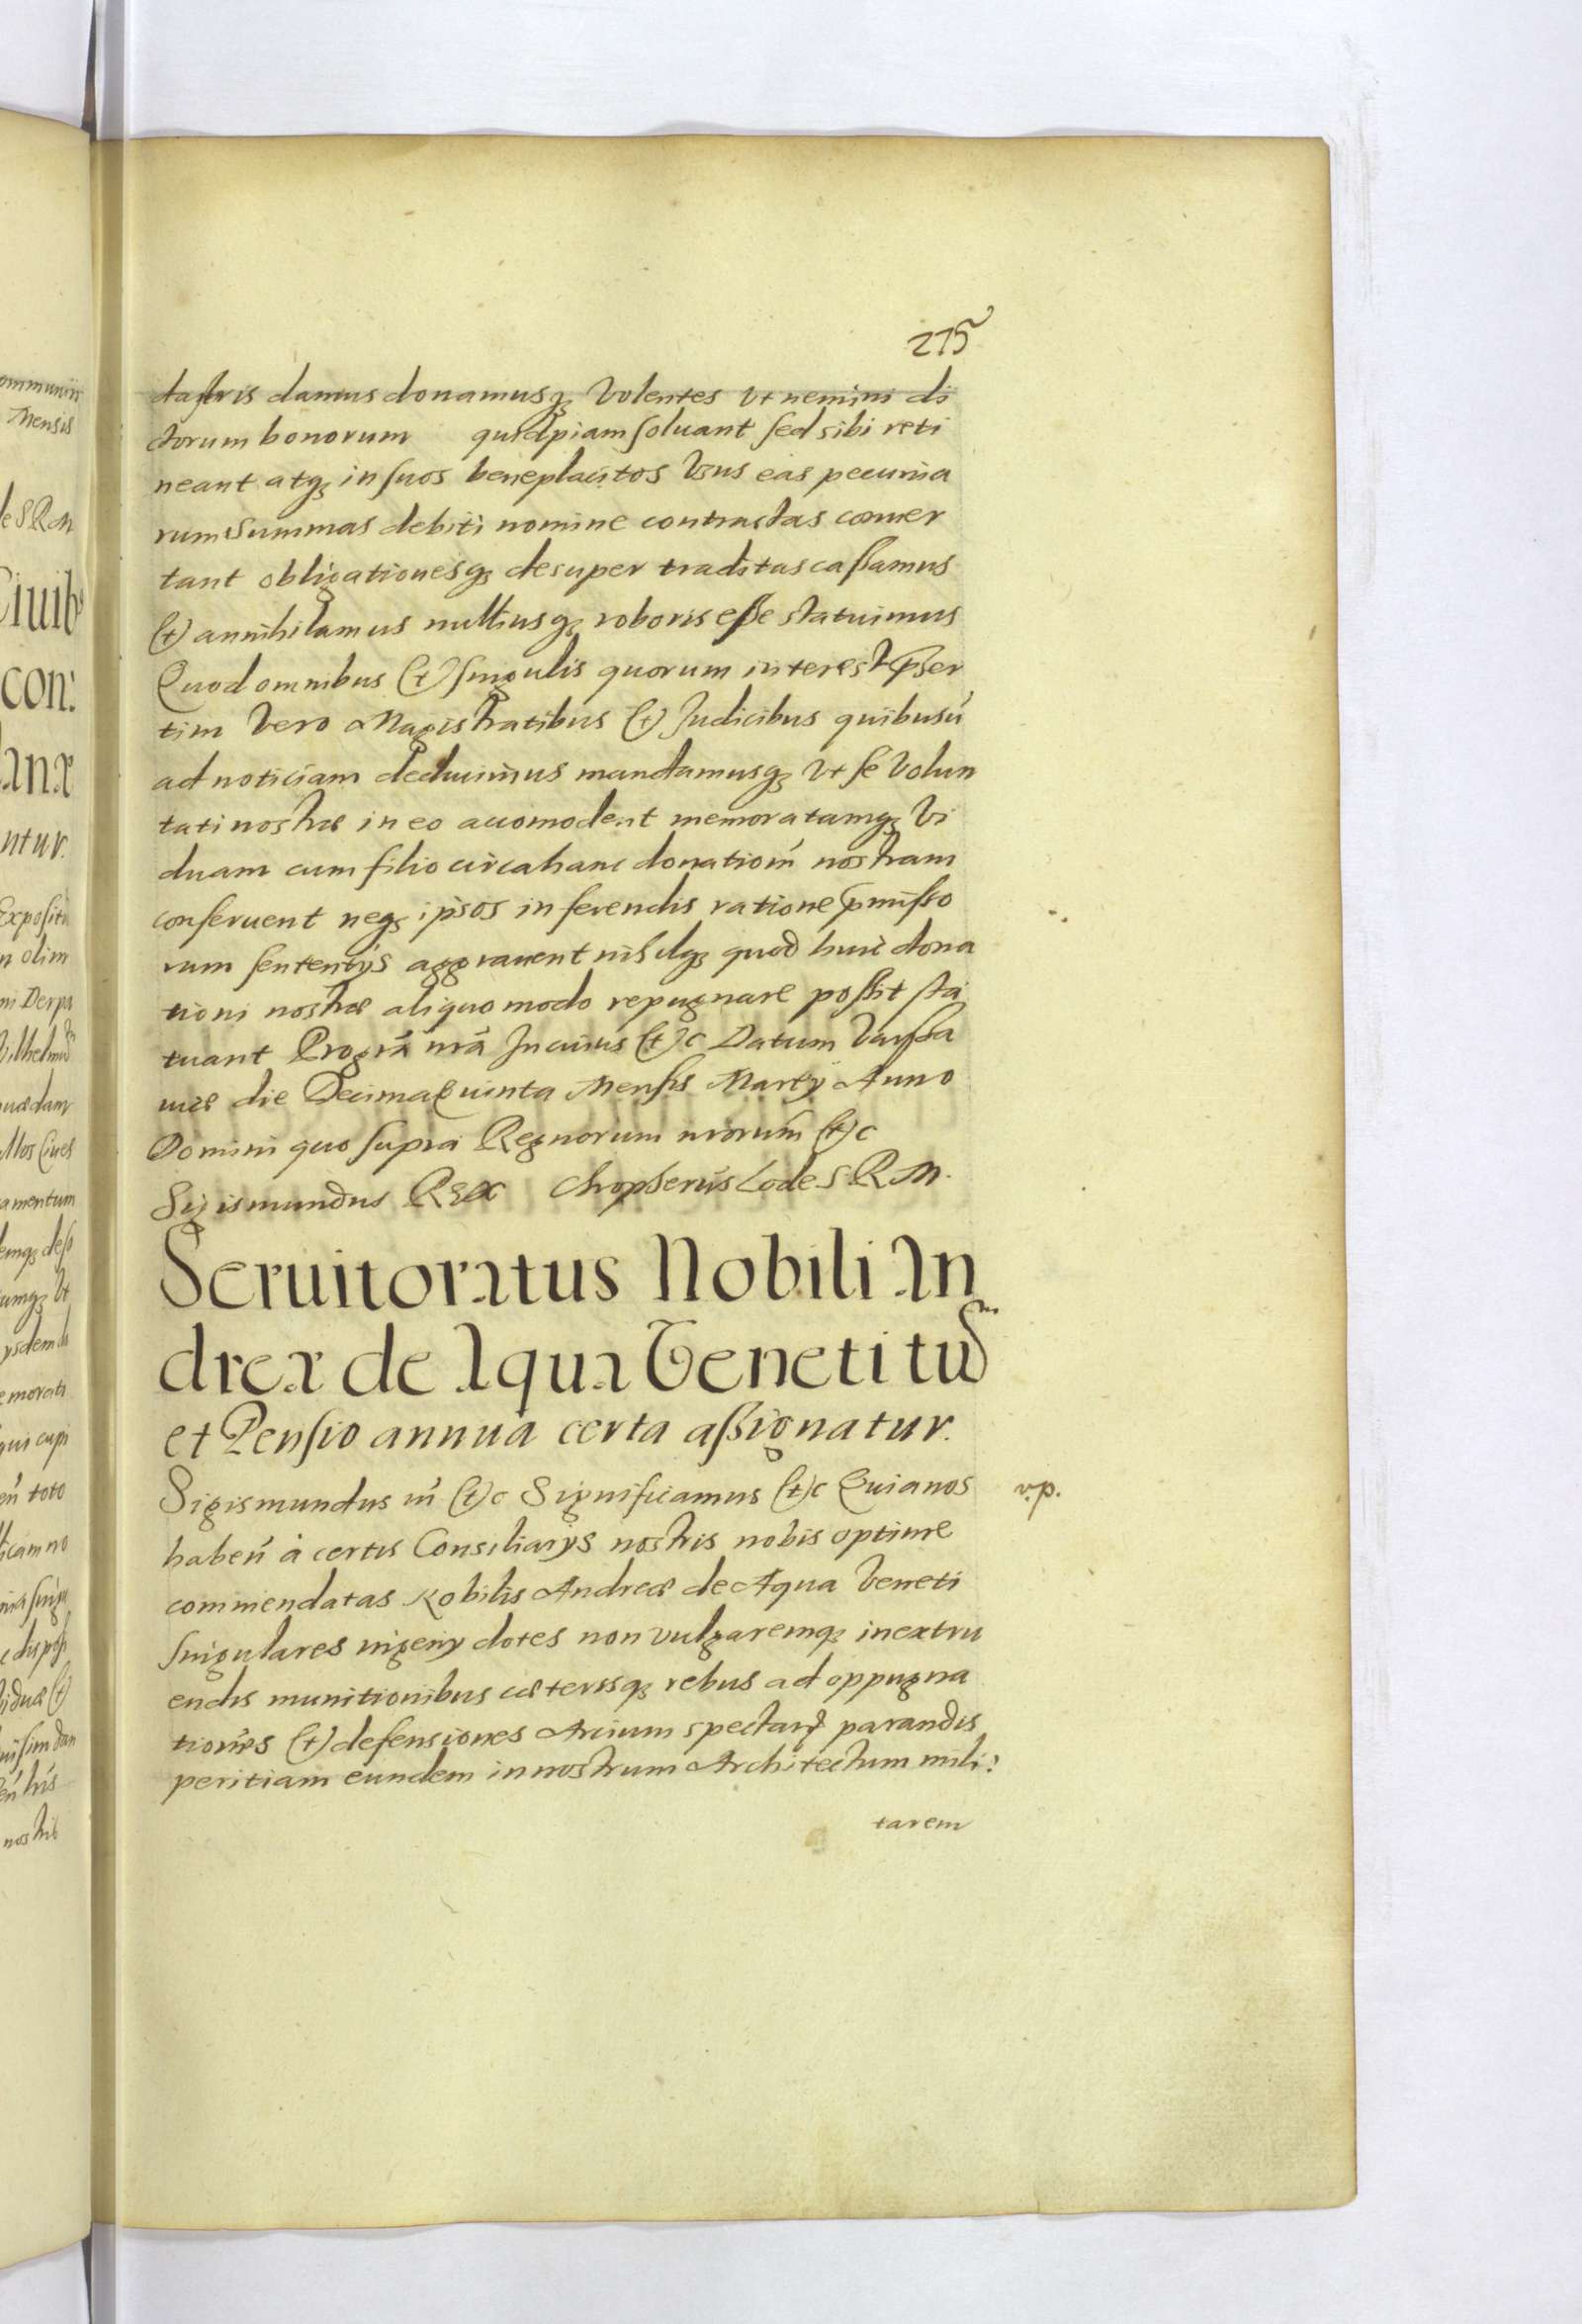 275
dastris damus donamusq₃ Volentes Vt nemini di
ctorum bonorum quidpiam soluant sed sibi reti
neant atq₃ in suos beneplacitos Vsus eas pecunia
rum Summas debiti nomine contractas conuer
tant obligationesq₃ desuper traditas cassamus
(et) annihilamus nulliusq₃ roboris esse statuimus
Quod omnibus (et) singulis quorum interest p̃ser
tim Vero Magistratibus (et) Judicibus quibusũ
ad noticiam deducimus mandamusq₃ Vt se Volun
tati nostræ in eo accomodent memoratamq₃ Vi
duam cum filio circa hanc donatioñ nostram
conseruent neq₃ ipsos in ferendis ratione p̃misso
rum sententÿs aggrauent nihilq₃ quod huic dona
tioni nostræ aliquo modo repugnare possit sta
tuant Pro gr̃a nr̃a In cuius (et)c Datum Varssa
uiæ die Decima Quinta Mensis Martÿ Anno
Domini quo supra Regnorum nrorum̃ (et)c
Sigismundus Rex Chrophserus Lode S R M.
Seruitoratus Nobili An
dreæ de Aqua Veneti tũ
et Pensio annua certa assignatur.
Sigismundus iñ (et)c Significamus (et)c Quia nos v.p.
habeñ à certis Consiliarÿs nostris nobis optime
commendatas Nobilis Andreæ de Aqua Veneti
singulares ingenÿ dotes non vulgaremq₃ in extru
endis munitionibus cæterisq₃ rebus ad oppugna
tiones (et) defensiones Arcium spectañ parandis
peritiam eundem in nostrum Architectum mili:
tarem